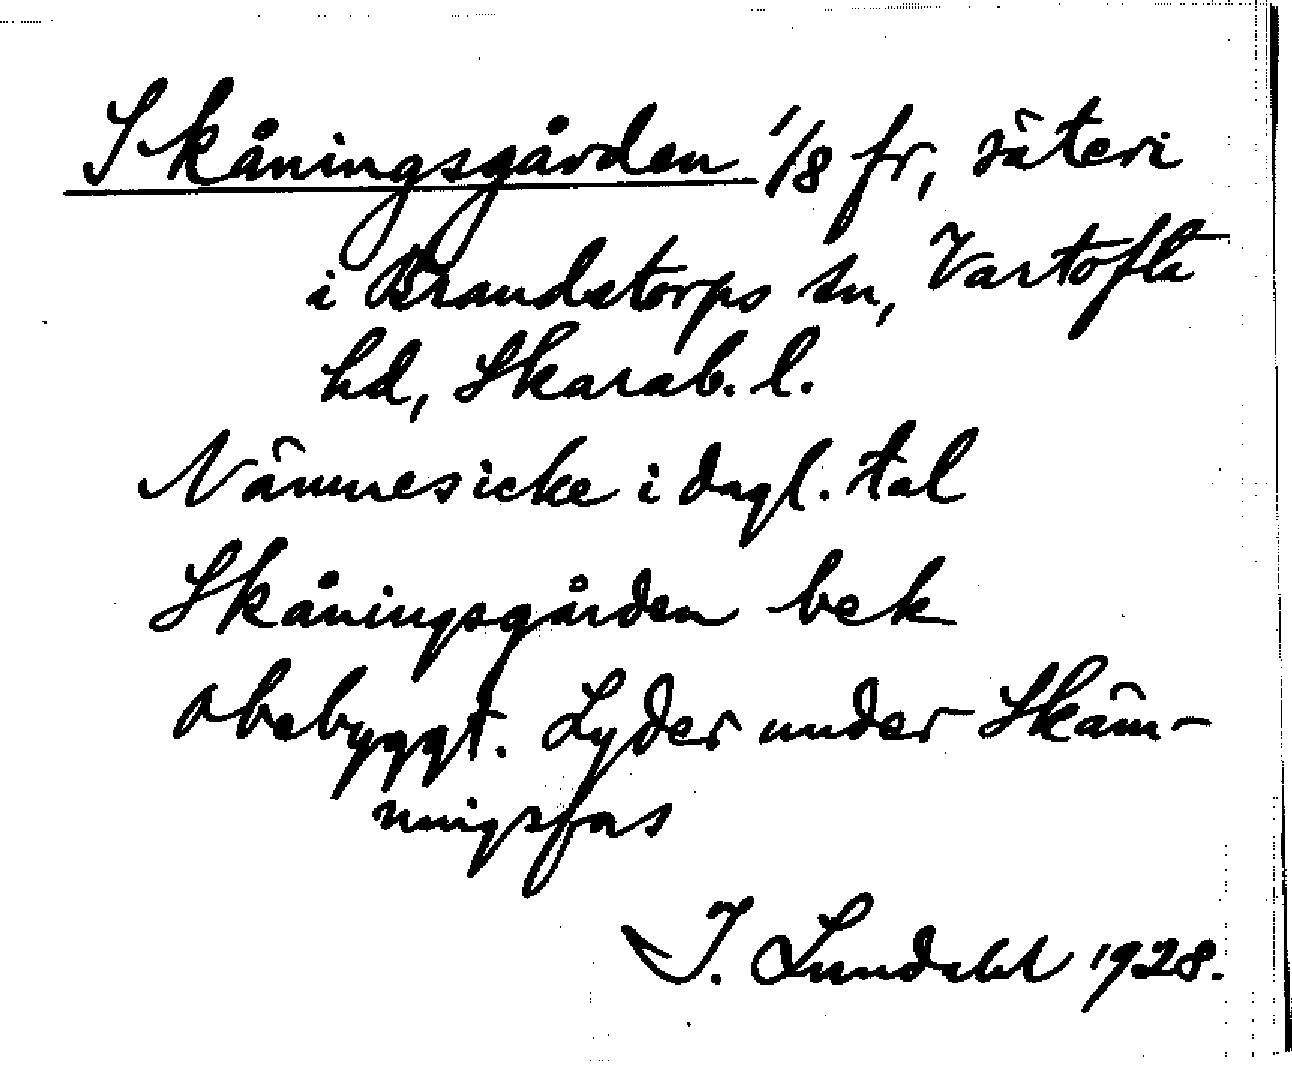 Skåningsgården 1/8 fr, säteri
i Brandstorps sn, Vartofta
hd, Skarab. l.
Nämnes icke i dagl. tal
Skåningsgården bek
obebyggt. Lyder under Skäm-
ningsfors
I. Lundahl 1928.